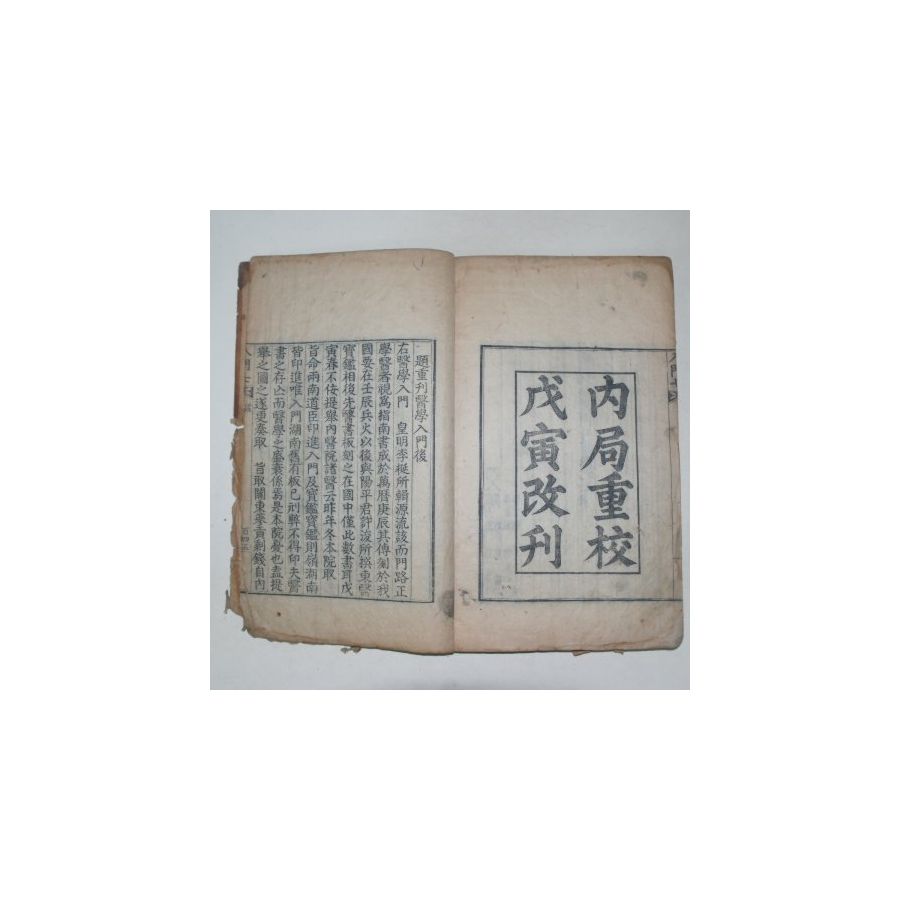 內局重校
戊寅改刊
題重刊醫學入門後
右醫學入門 皇明李梴所輯源流該而門路正
學醫者視爲指南書成於萬曆庚辰其傳彌於我
國要在壬辰兵火以後與陽平君許浚所撰東醫
寶鑑相後先醫書板刻之在國中僅此數書耳戊
寅春不佞提擧內醫院諸醫云昨年冬本院取
旨命兩南道臣印進入門及寶鑑寶鑑則嶺湖南
皆印進唯入門湖南舊有板已刓弊不得印夫醫
書之存亡而醫學之盛衰係焉是本院憂也盍提
擧之圖之遂更奏取 旨取關東蔘貢剩錢自內